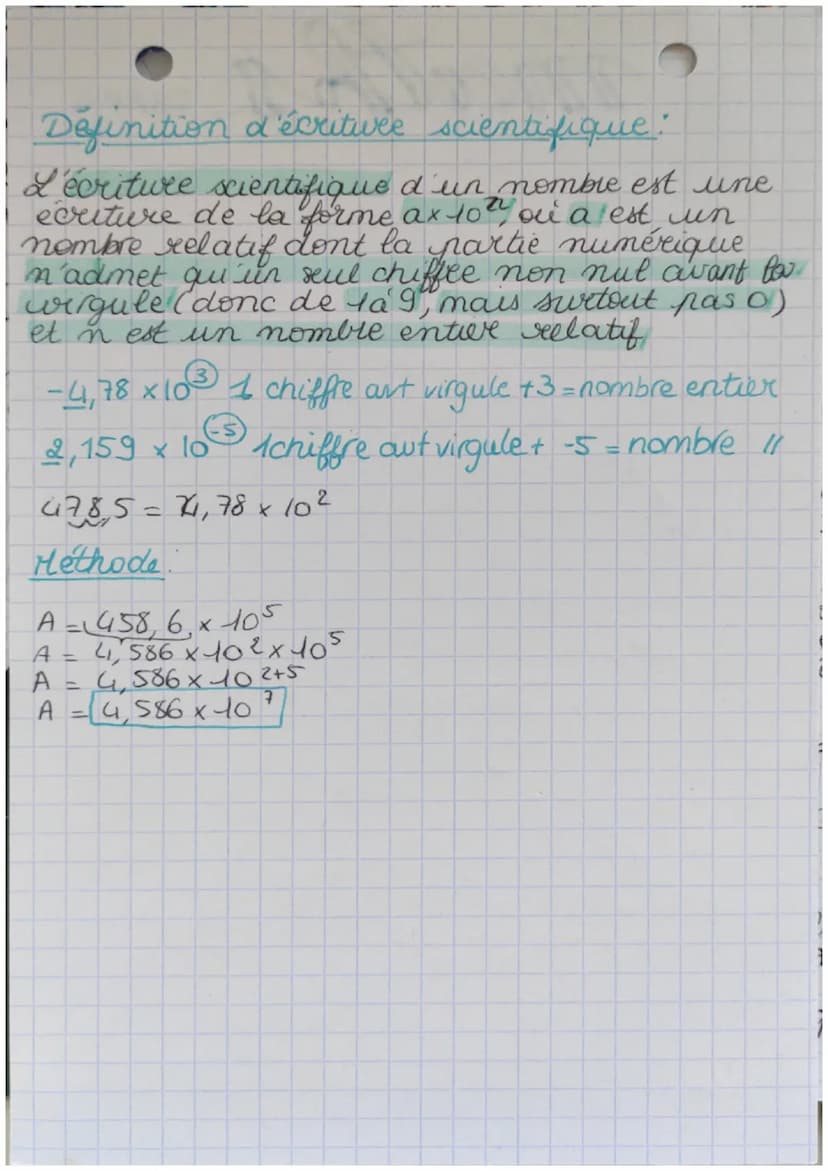 Définition d'écriture scientifique :
L'écriture scientifique d'un nombre est une
écriture de la forme a × 10ⁿ, où a est un
nombre relatif dont la partie numérique
n'admet qu'un seul chiffre non nul avant la
virgule (donc de 1 à 9, mais surtout pas 0)
et n est un nombre entier relatif
-4,78 × 10³ 1 chiffre avt virgule + 3 = nombre entier
2,159 × 10⁻⁵ 1 chiffre avt virgule + -5 = nombre //
478,5 = 4,78 × 10²
Méthode :
A = 458,6 × 10⁵
A = 4,586 × 10² × 10⁵
A = 4,586 × 10²⁺⁵
A = 4,586 × 10⁷